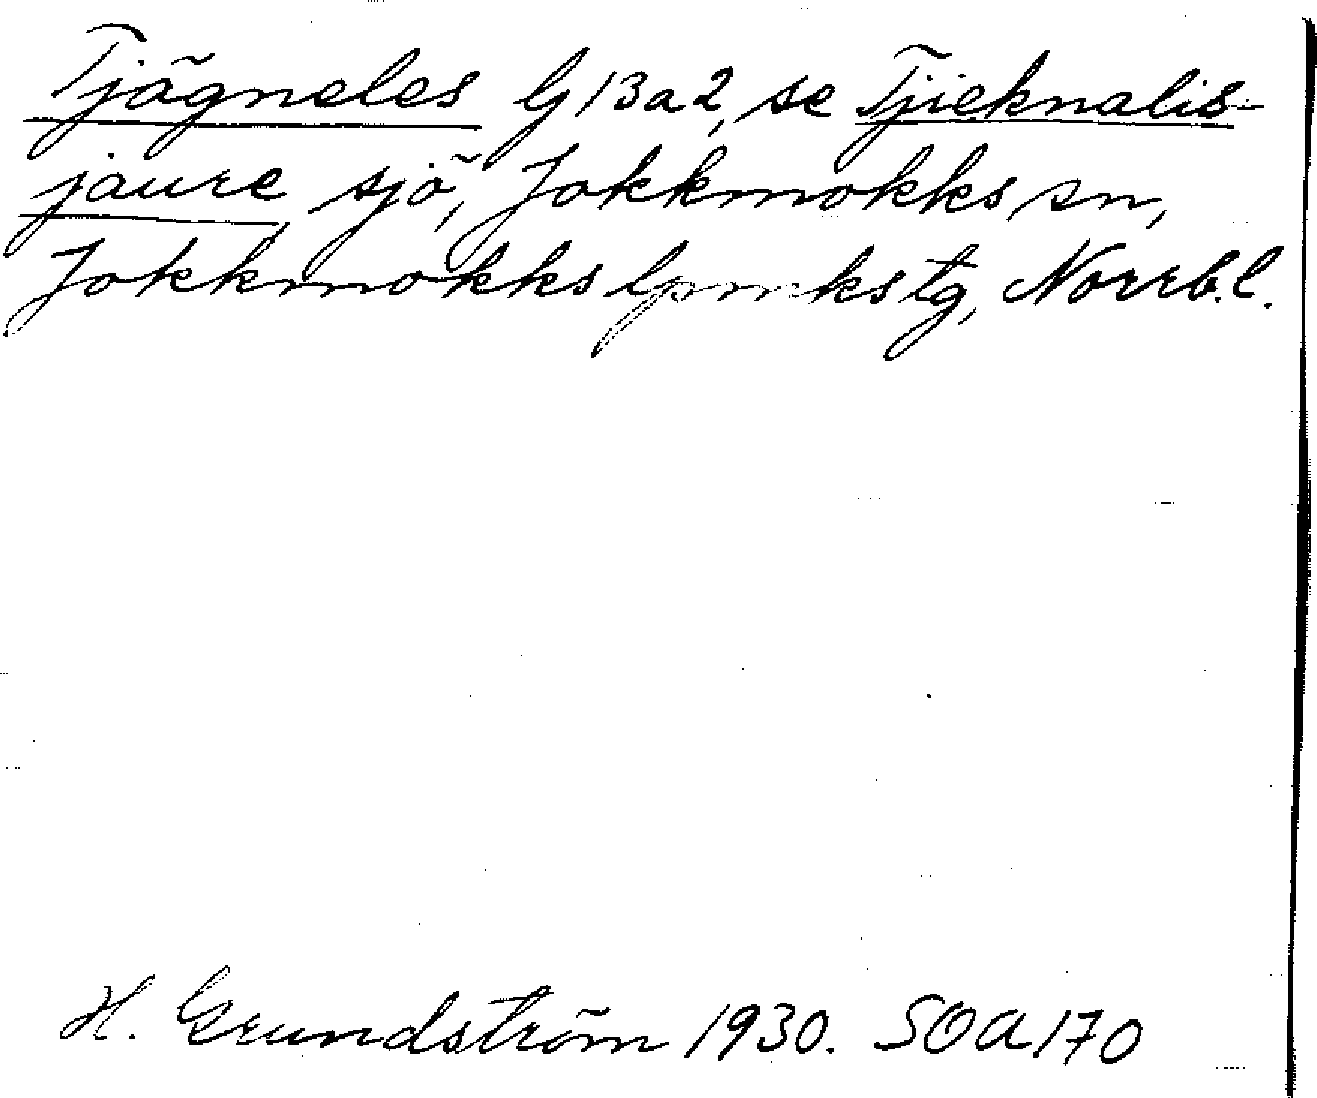 Tjägneles G13a2, se Tjieknalis-
jaure, sjö, Jokkmokks sn,
Jokkmokks lpmks tg, Norrb.l.
H. Grundström 1930. SOA170